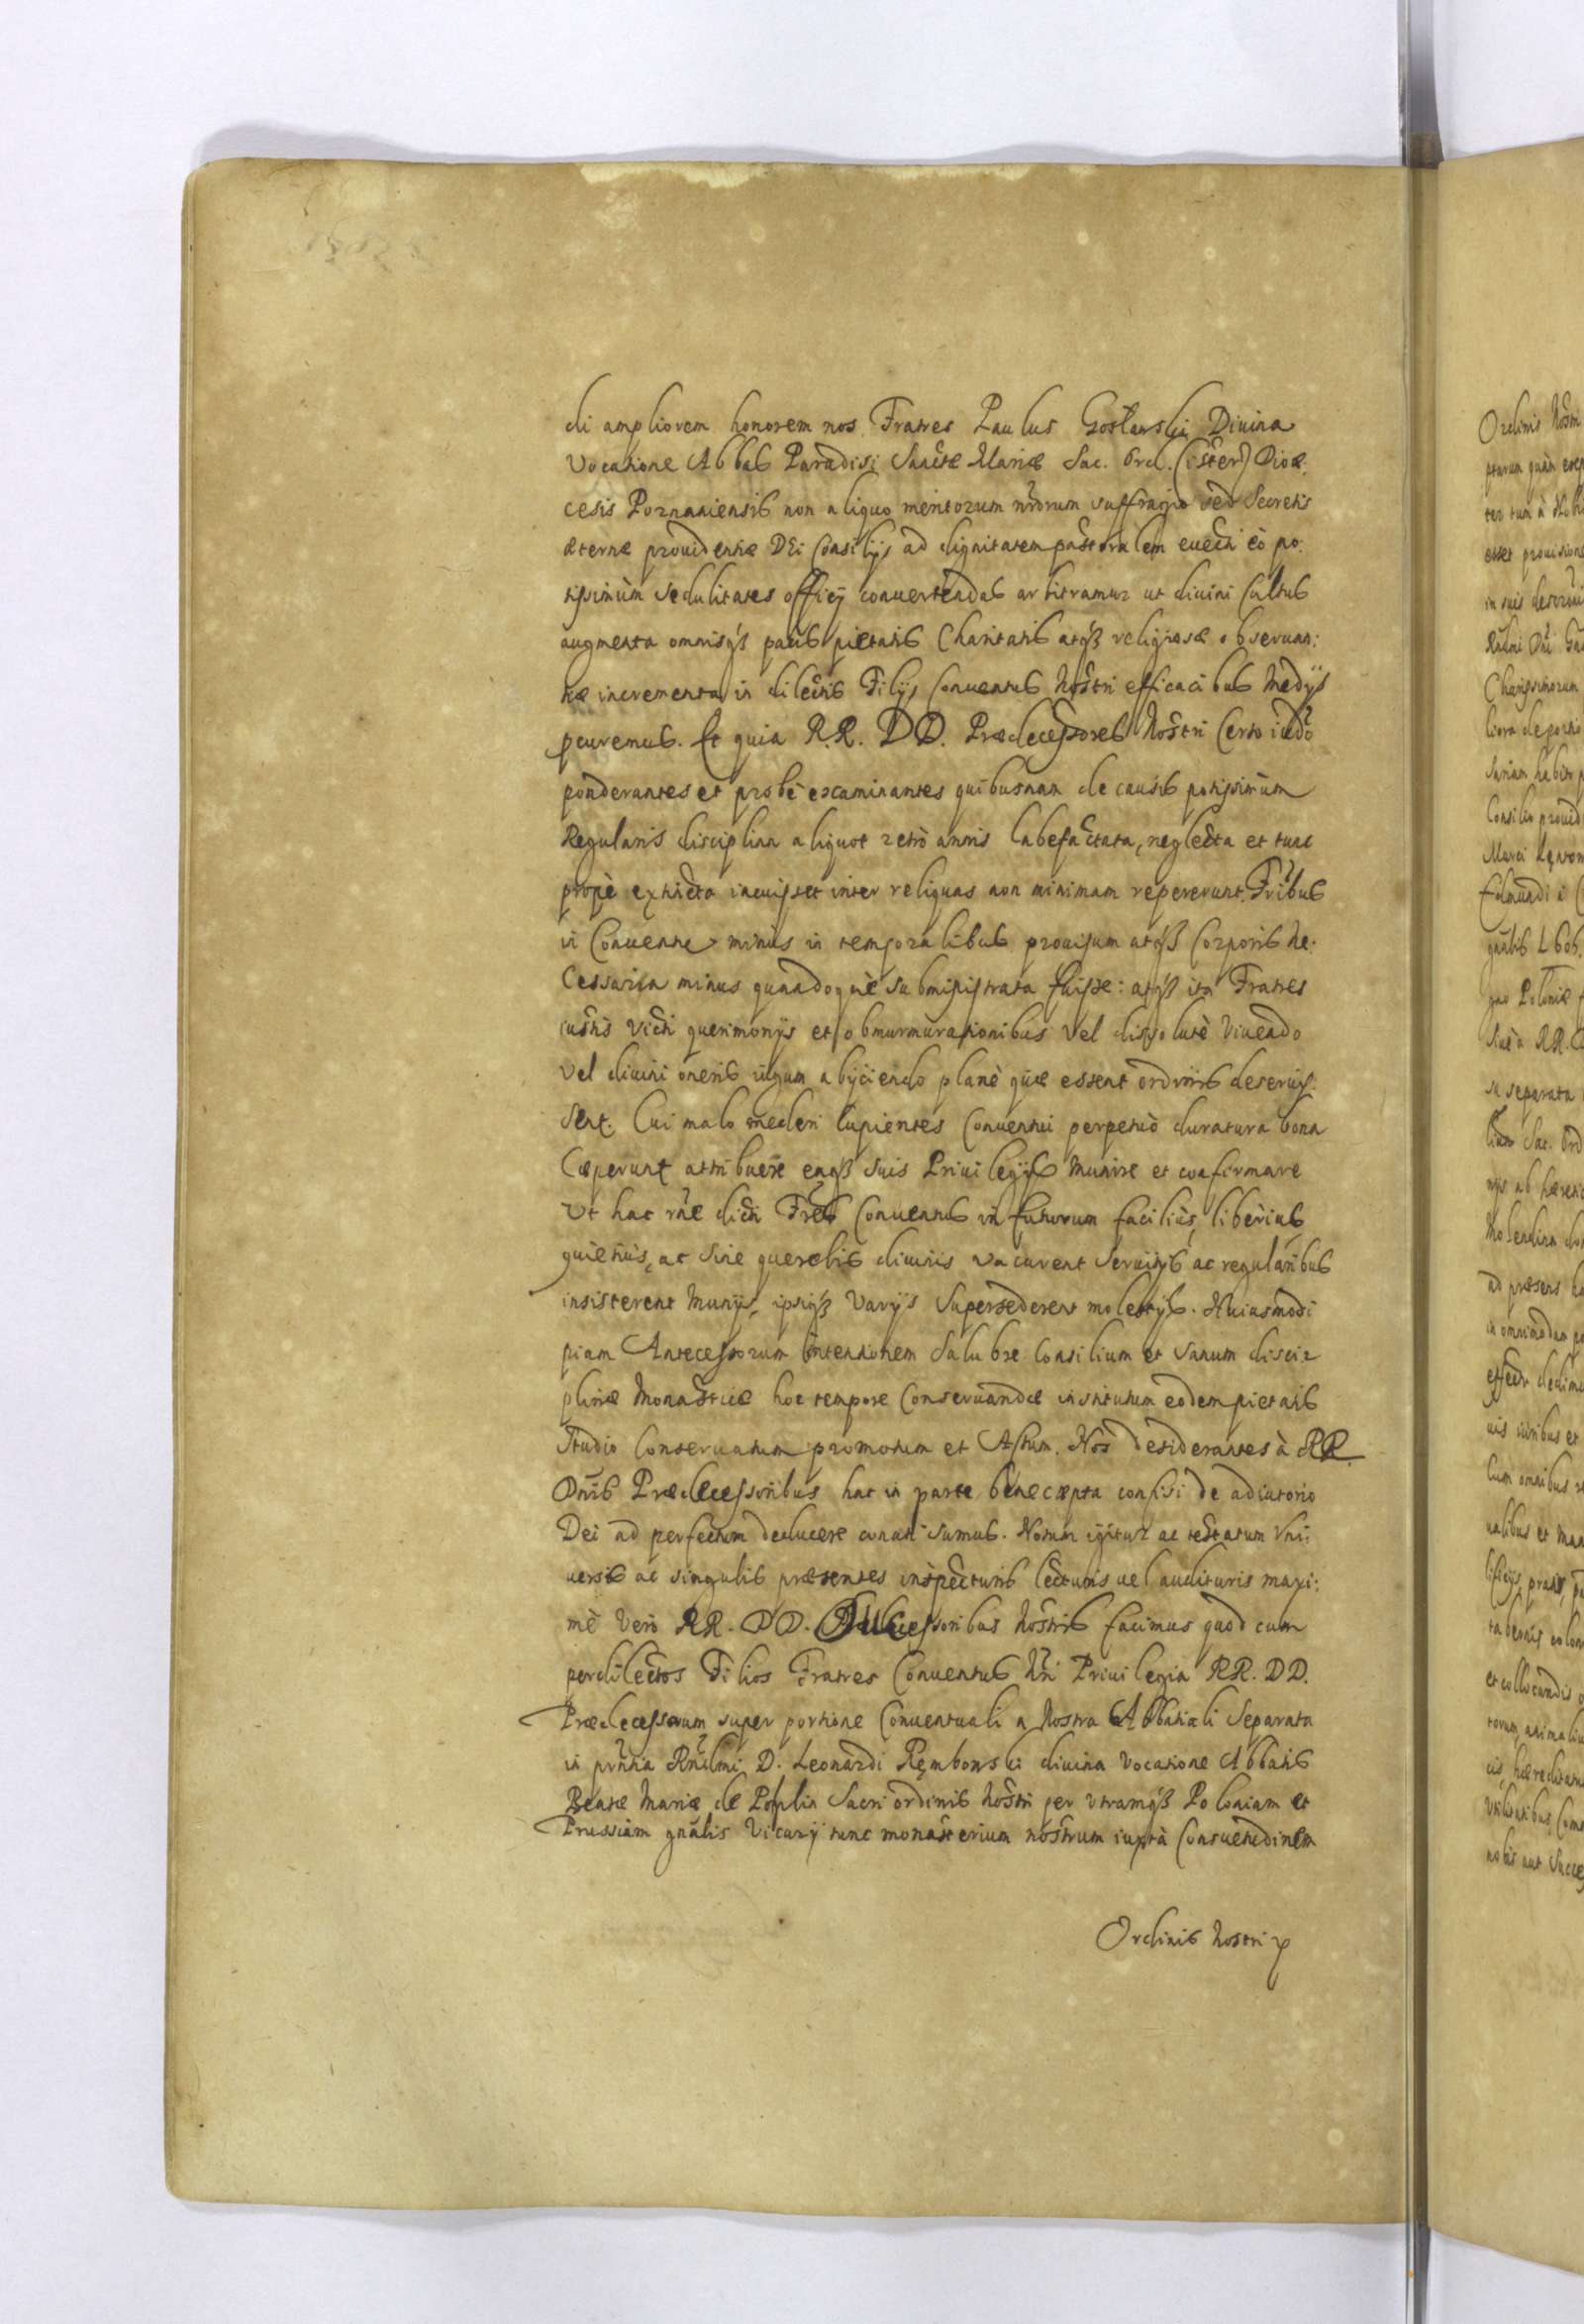 di ampliorem honorem nos Fratres Paulus Gostawski Divina
Vocatione Abbas Paradisi Sanctæ Mariæ Sac. Ord. Cister: Dioæ:
cesis Poznaniensis non aliquo meritorum nrorum suffragio sed Secretis
æternæ providentiæ DEi Consilijs ad dignitatem pastoralem evecti eò po:
tissimùm sedulitates officij convertendas arbitramur ut divini Cultus
augmenta omnisq₃ pacis pietatis Charitatis atq₃ religiosæ observan:
tiæ incrementa in dilectis Filijs Conventus Nostri efficacibus Medijs
pcuremus. Et quia R.R. DD. Prædecessores Nostri Certo iudo
ponderantes et probè examinantes quibusnam de causis potissimùm
Regularis disciplina aliquot retrò annis labefactata, neglecta et tunc
propè extincta iacuisset inter reliquas non minimam repererunt, Fribus
in Conventu minus in temporalibus provisum atq₃ Corporis ne:
Cessaria minus quandoquè subministrata fuisse: atq₃ ita Fratres
iustis victi querimonijs et obmurmurationibus vel dissolutè vivendo
vel divini oneris iugum abijciendo planè quæ essent ordinis deseruis:
sent. Cui malo mederi Cupientes Conventui perpetuò duratura bona
Cæperunt attribuere eaq₃ suis Privilegijs Munire et confirmare
Ut hac rne dicti Fres Conventus in futurum faciliùs, liberius
quietiùs, ac sine querelis divinis vacarent servitijs ac regularibus
insisterent Munijs, ipsiq₃ Varijs Supersederent molestijs. Huiusmodi
piam Antecessorum intentionem Salubre Consilium et Sanum disci=
plinæ Monasticæ hoc tempore Conservandæ institutum eodem pietatis
Studio Conservatum promotum et Actum. Nos desiderantes à RR
Dnis Prædecessoribus hac in parte bene cæpta confisi de adiutorio
Dei ad perfectum deducere conati sumus. Notum igitur ac testatum Uni:
versis ac singulis præsentes inspecturis lecturis vel audituris maxi:
mè verò RR. DD. Successoribus Nostris facimus quod cum
perdilectos Filios Fratres Conventus Nri Privilegia RR. DD.
Prædecessorum super portione Conventuali a Nostra Abbatiali Separata
in prntia Rndmi D. Leonardi Rębowski divina Vocatione Abbatis
Beatæ Mariæ de Poplin Sacri ordinis Nostri per Utramq₃ Poloniam et
Prussiam gnalis Vicarij tunc monasterium nostrum iuxtà Consuetudinem
Ordinis Nostri